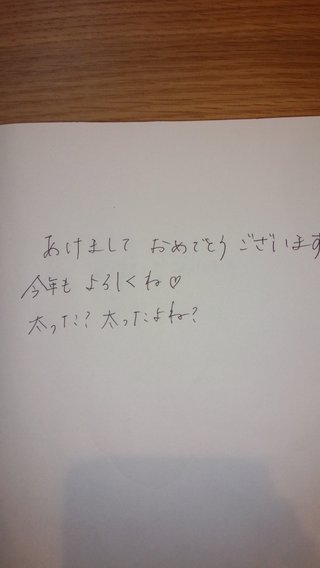 あけまして おめでとう ございます
今年も よろしくね♡
太った? 太ったよね?